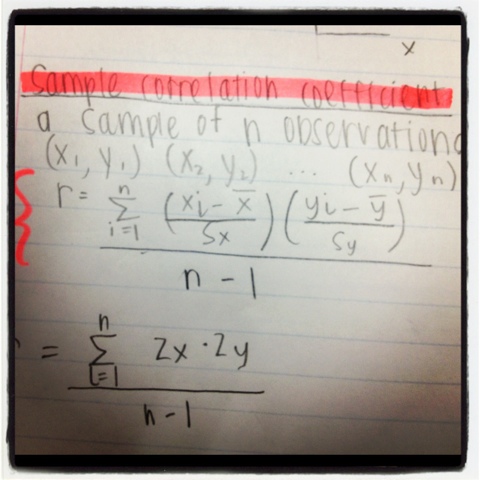 x
Sample correlation coefficient
a sample of n observation
(x₁, y₁) (x₂, y₂) ... (xₙ, yₙ)
r = n∑i=1 (xi - x̄ / Sx) (yi - ȳ / Sy)
n - 1
= n∑i=1 zx · zy
n - 1